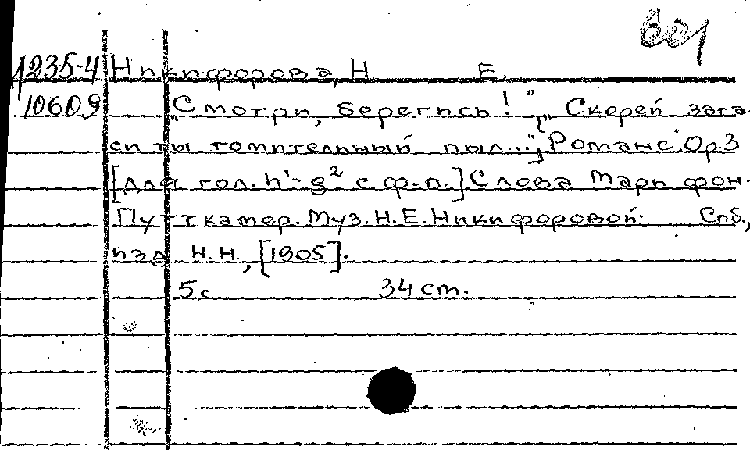 601
1235-4 Никифорова, Н Е.
10609 „Смотри, берегись!", „Скорей зага
си ты томительный пыл..." Романс. Ор 3
[для гол. h¹-g² с ф-п.] Слова Мари фон-
Путткамер. Муз. Н. Е. Никифоровой. Спб,
изд Н.Н, [1905].
5 с 34 ст.